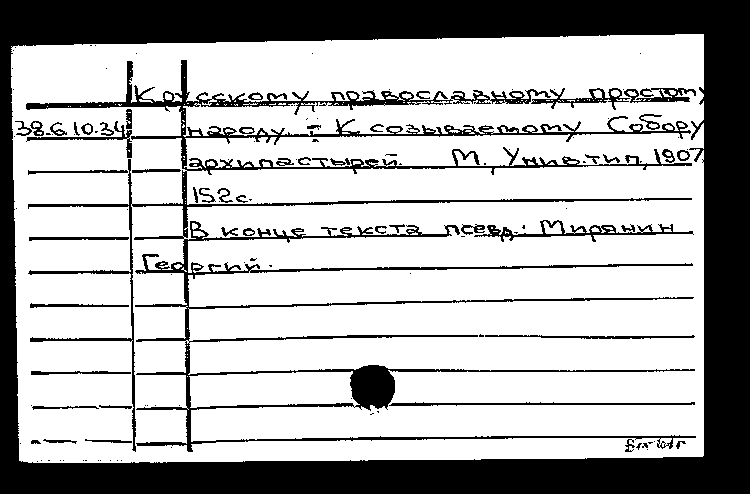 К русскому, православному, простому
38.6.10.34 народу. – К созываемому Собору
архипастырей. М., Унив. тип., 1907.
152 с.
В конце текста псевд.: Мирянин
Георгий.